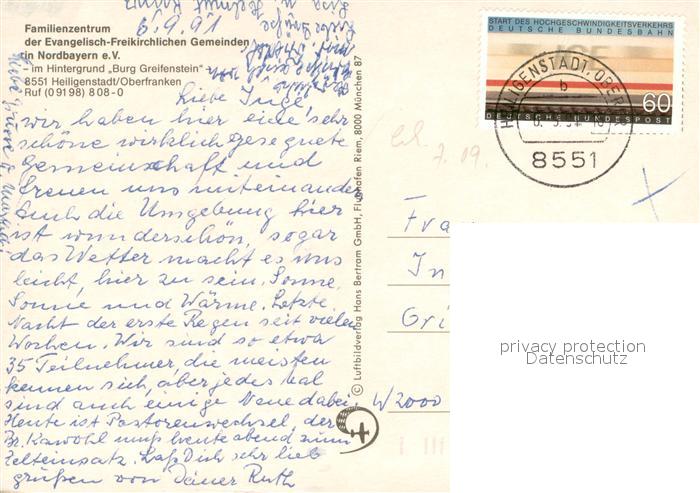 Familienzentrum
der Evangelisch-Freikirchlichen Gemeinden
in Nordbayern e.V.
im Hintergrund „Burg Greifenstein"
8551 Heiligenstadt/Oberfranken
Ruf (0 91 98) 8 08-0
6.9.91
Liebe Inge,
wir haben hier eine sehr
schöne wirklich gesegnete
Gemeinschaft und
freuen uns miteinander.
Auch die Umgebung hier
ist wunderschön, sogar
das Wetter macht es uns
leicht, hier zu sein. Sonne,
Sonne und Wärme. Letzte
Nacht der erste Regen seit vielen
Wochen. Wir sind so etwa
35 Teilnehmer, die meisten
kennen sich, aber jedes Mal
sind auch einige Neue dabei.
Heute ist Pastorenwechsel, der
Br. Kawohl muß heute abend zum
Zelteinsatz. Laß Dich sehr lieb
grüßen von Deiner Ruth
© Luftbildverlag Hans Bertram GmbH, Flughafen Riem, 8000 München 87
START DES HOCHGESCHWINDIGKEITSVERKEHRS
DEUTSCHE BUNDESBAHN
ICE
60
DEUTSCHE BUNDESPOST
HEILIGENSTADT, OBERFR
b
8551
7.09.
Fra
In
Gri
W 2000
privacy protection
Datenschutz